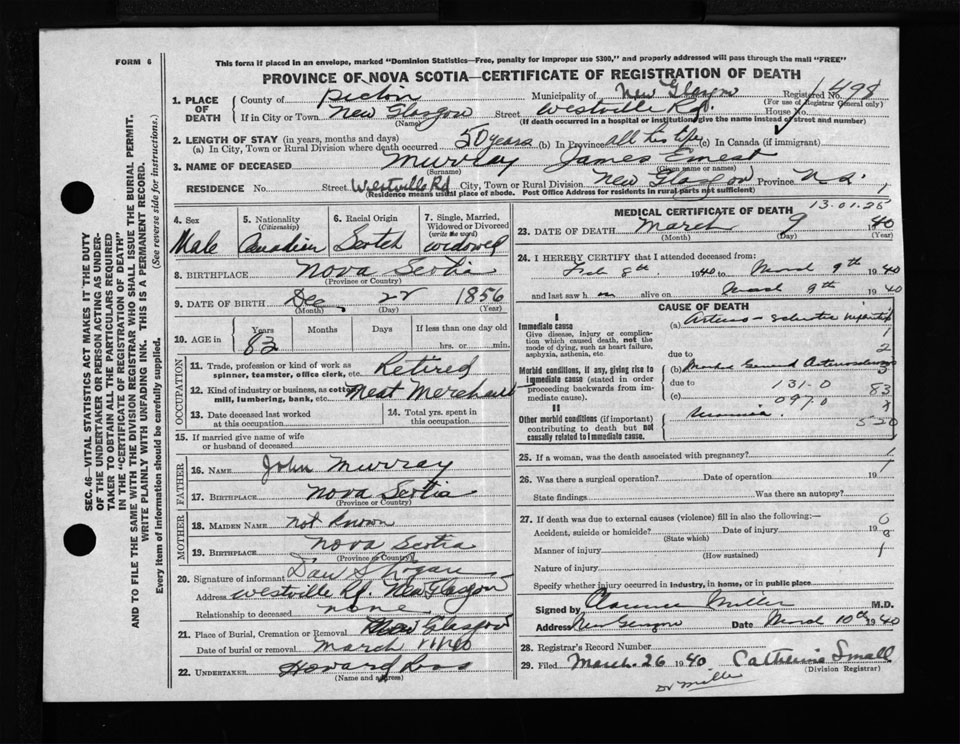 FORM 6
This form if placed in an envelope, marked "Dominion Statistics—Free, penalty for improper use $300," and properly addressed will pass through the mail "FREE"
PROVINCE OF NOVA SCOTIA—CERTIFICATE OF REGISTRATION OF DEATH
SEC. 46—VITAL STATISTICS ACT MAKES IT THE DUTY
OF THE UNDERTAKER OR PERSON ACTING AS UNDER-
TAKER TO OBTAIN ALL THE PARTICULARS REQUIRED
IN THE "CERTIFICATE OF REGISTRATION OF DEATH"
AND TO FILE THE SAME WITH THE DIVISION REGISTRAR WHO SHALL ISSUE THE BURIAL PERMIT.
WRITE PLAINLY WITH UNFADING INK. THIS IS A PERMANENT RECORD.
Every item of information should be carefully supplied. (See reverse side for instructions.)
1. PLACE OF DEATH
County of Pictou Municipality of New Glasgow Registered No. 1498
(For use of Registrar General only)
If in City or Town New Glasgow Street Westville Rd. House No.
(Name) (If death occurred in a hospital or institution, give the name instead of street and number)
2. LENGTH OF STAY (in years, months and days)
(a) In City, Town or Rural Division where death occurred 50 years (b) In Province all his life (c) In Canada (if immigrant)
3. NAME OF DECEASED Murray James Ernest
(Surname) (Given name or names)
RESIDENCE No. Street Westville Rd City, Town or Rural Division New Glasgow Province N.S. 1
(Residence means usual place of abode. Post Office Address for residents in rural parts not sufficient)
4. Sex Male
5. Nationality (Citizenship) Canadian
6. Racial Origin Scotch
7. Single, Married, Widowed or Divorced (write the word) widowed
8. BIRTHPLACE Nova Scotia
(Province or Country)
9. DATE OF BIRTH Dec 22 1856
(Month) (Day) (Year)
10. AGE Years 83 Months Days If less than one day old
hrs. or min.
OCCUPATION
11. Trade, profession or kind of work as spinner, teamster, office clerk, etc. Retired
12. Kind of industry or business, as cotton mill, lumbering, bank, etc. Meat Merchant
13. Date deceased last worked at this occupation
14. Total yrs. spent in this occupation
15. If married give name of wife or husband of deceased
FATHER
16. NAME John Murray
17. BIRTHPLACE Nova Scotia
(Province or Country)
MOTHER
18. MAIDEN NAME Not Known
19. BIRTHPLACE Nova Scotia
(Province or Country)
20. Signature of informant Dan
Address Westville Rd. New Glasgow
Relationship to deceased none
21. Place of Burial, Cremation or Removal New Glasgow
Date of burial or removal March 11/40
22. UNDERTAKER Howard Ross
(Name and address)
MEDICAL CERTIFICATE OF DEATH 13-01-25
23. DATE OF DEATH March 9 1940
(Month) (Day) (Year)
24. I HEREBY CERTIFY that I attended deceased from:
Feb 8th. 1940 to March 9th 1940
and last saw him alive on March 9th 1940
CAUSE OF DEATH
I
Immediate cause
Give disease, injury or complication which caused death, not the mode of dying, such as heart failure, asphyxia, asthenia, etc
(a) Arterio-sclerotic nephritis 1
due to 2
Morbid conditions, if any, giving rise to immediate cause (stated in order proceeding backwards from immediate cause).
(b) Marked General Arteriosclerosis 3
due to 131-0 83
(c) 097.0
II
Other morbid conditions (if important) contributing to death but not causally related to immediate cause.
Uraemia. 520
25. If a woman, was the death associated with pregnancy? 1
26. Was there a surgical operation? Date of operation 19
State findings Was there an autopsy?
27. If death was due to external causes (violence) fill in also the following:— 0
Accident, suicide or homicide? Date of injury 19 8
(State which)
Manner of injury 1
(How sustained)
Nature of injury
Specify whether injury occurred in industry, in home, or in public place
Signed by Clarence Miller M.D.
Address New Glasgow Date March 10th 1940
28. Registrar's Record Number
29. Filed March. 26 1940 Catherine Small
(Division Registrar)
Dr Miller